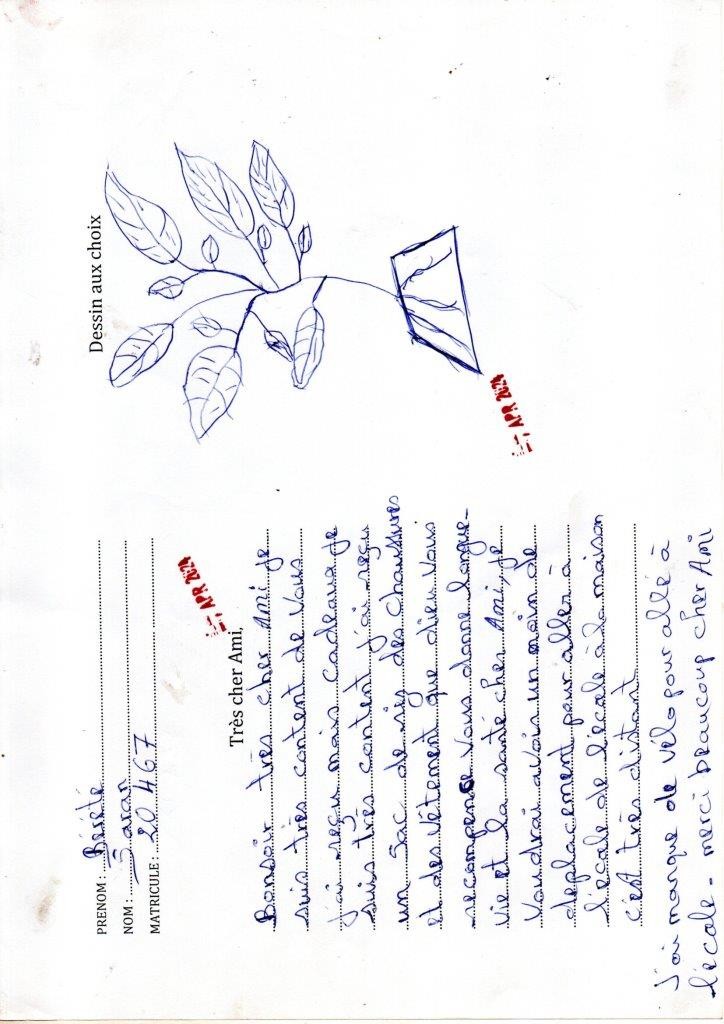 PRENOM : Béreté
NOM : Saran
MATRICULE : 20467
APR 2024
Très cher Ami,
Bonsoir très cher Ami je
suis très content de vous
j'ai reçu mais cadeaux je
suis très content j'ai reçu
un sac de riz des chaussures
et des vêtement que dieu vous
recompense vous donne longue-
vie et la santé cher Ami, je
voudrai avoir un moin de
deplacement pour aller à
l'école de l'école à la maison
c'est très distant
j'ai manque de vélo pour allé à
l'école - merci beaucoup cher Ami
Dessin aux choix
APR 2024